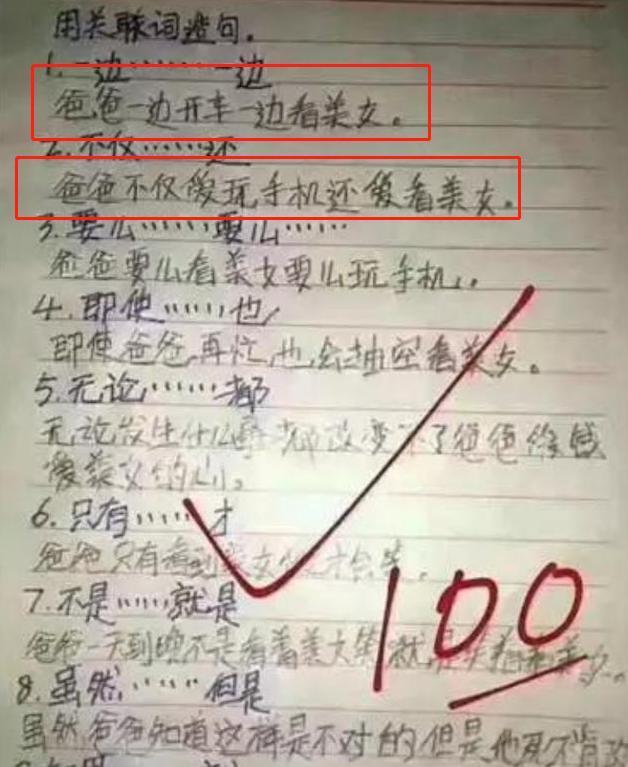 用关联词造句。
1.一边………一边
爸爸一边开车一边看美女。
2.不仅……还
爸爸不仅爱玩手机还爱看美女。
3.要么……要么……
爸爸要么看美女要么玩手机。
4.即使……也
即使爸爸再忙,也会抽空看美女。
5.无论……都
无论发生什么事都改变不了爸爸
爱美女的心。
6.只有……才
爸爸只有看到美女才会笑。
7.不是……就是
爸爸一天到晚不是看着美女笑就是
8.虽然……但是
虽然爸爸知道这样是不对的但是他
100